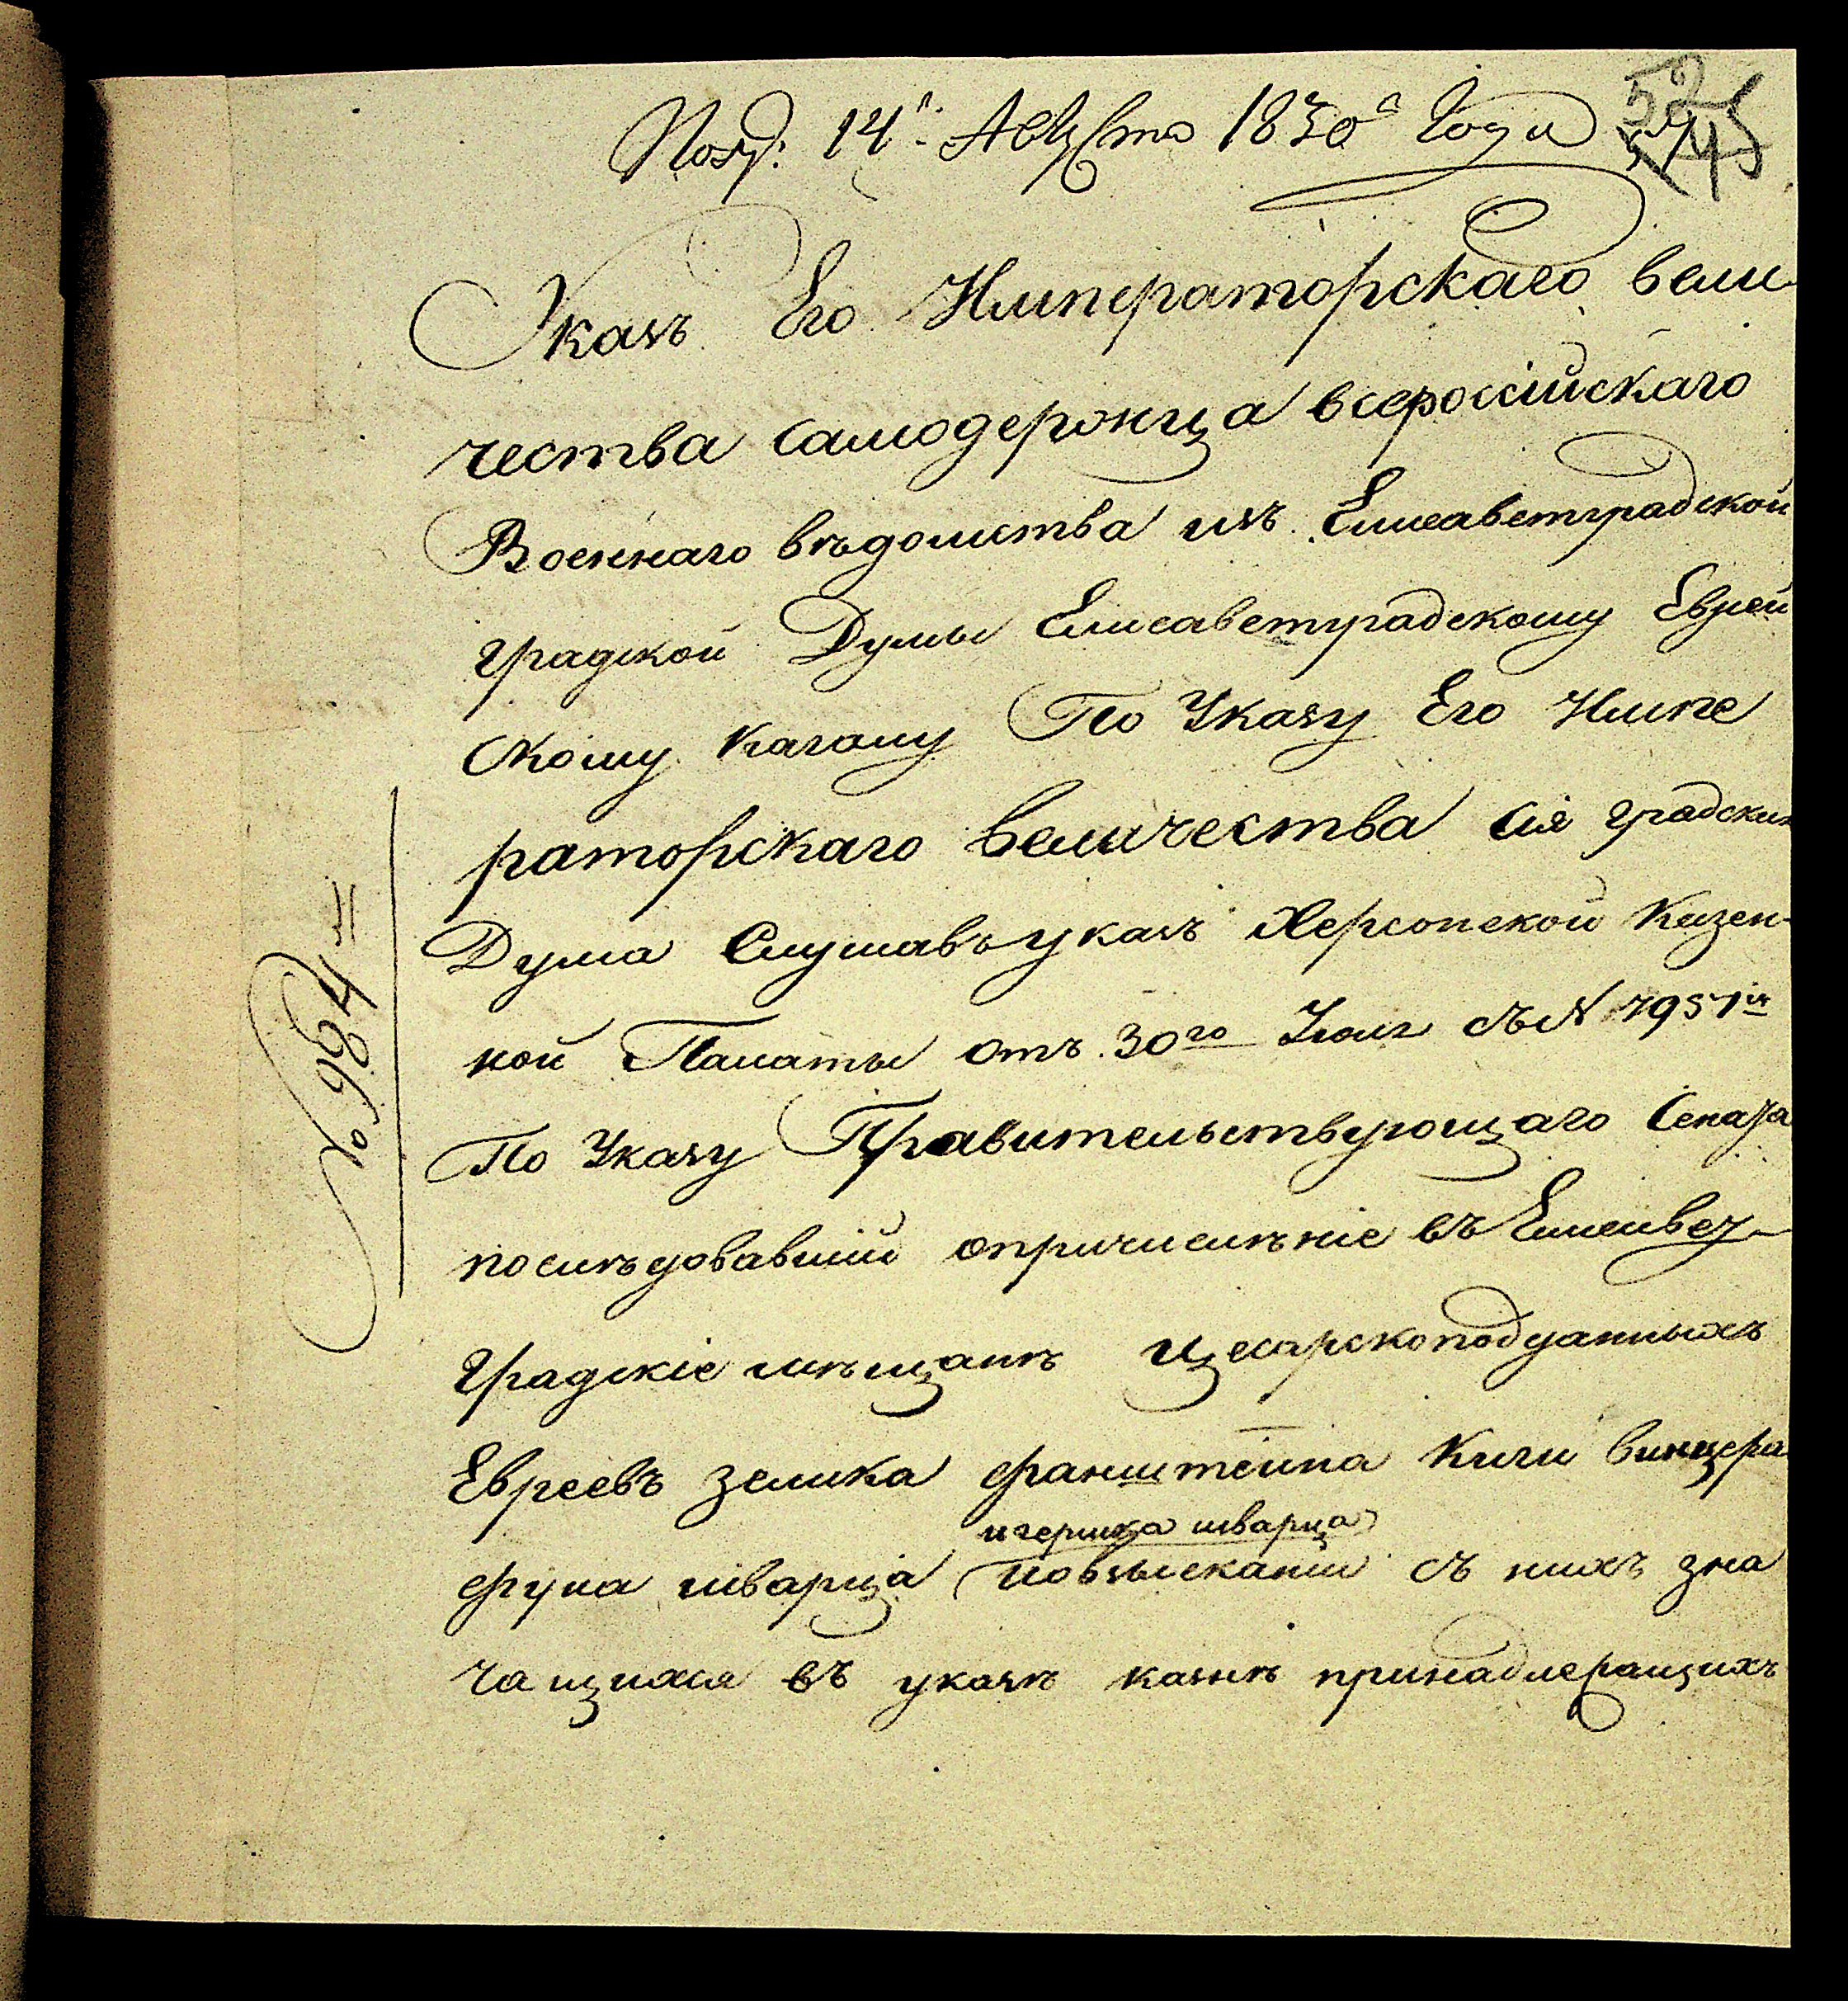 Пол: 14го Августа 1830го Года
52
Указъ Его Императорскаго вели
чества самодержца всероссійскаго
Военнаго вѣдомства изъ Елисаветградской
градской Думы Елисаветградскому Еврей
скому кагалу По Указу Его Импе
раторскаго величества сія градская
Дума Слушавъ указъ Херсонской Казен-
ной Палаты отъ 30го Іюля съ № 7951м
По Указу Правительствующаго Сената
послѣдовавшій опричисленіе въ Елисавет-
градскіе мѣщанѣ цесарскоподданныхъ
Евреевъ зелика франштейна Киги винцера
игершка шварца
фуна шварца повзысканіи съ нихъ зна
чащихся въ указѣ казнѣ принадлежащихъ
№ 984й